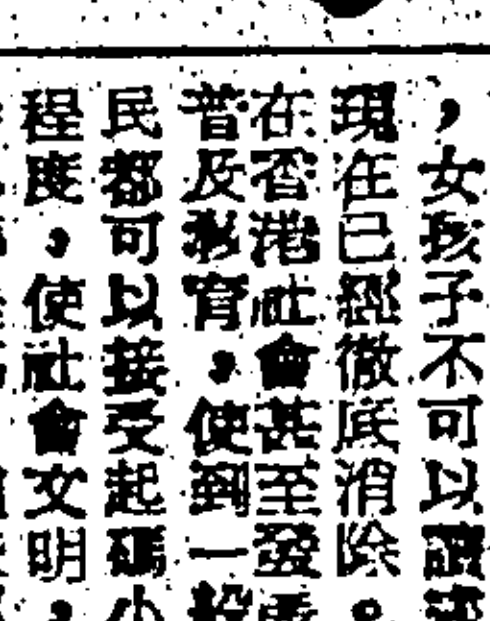 ，女孩子不可以讀
現在已經徹底消除。
在香港社會甚至發展
普及教育，使到一般
民都可以接受起碼小
程度，使社會文明，